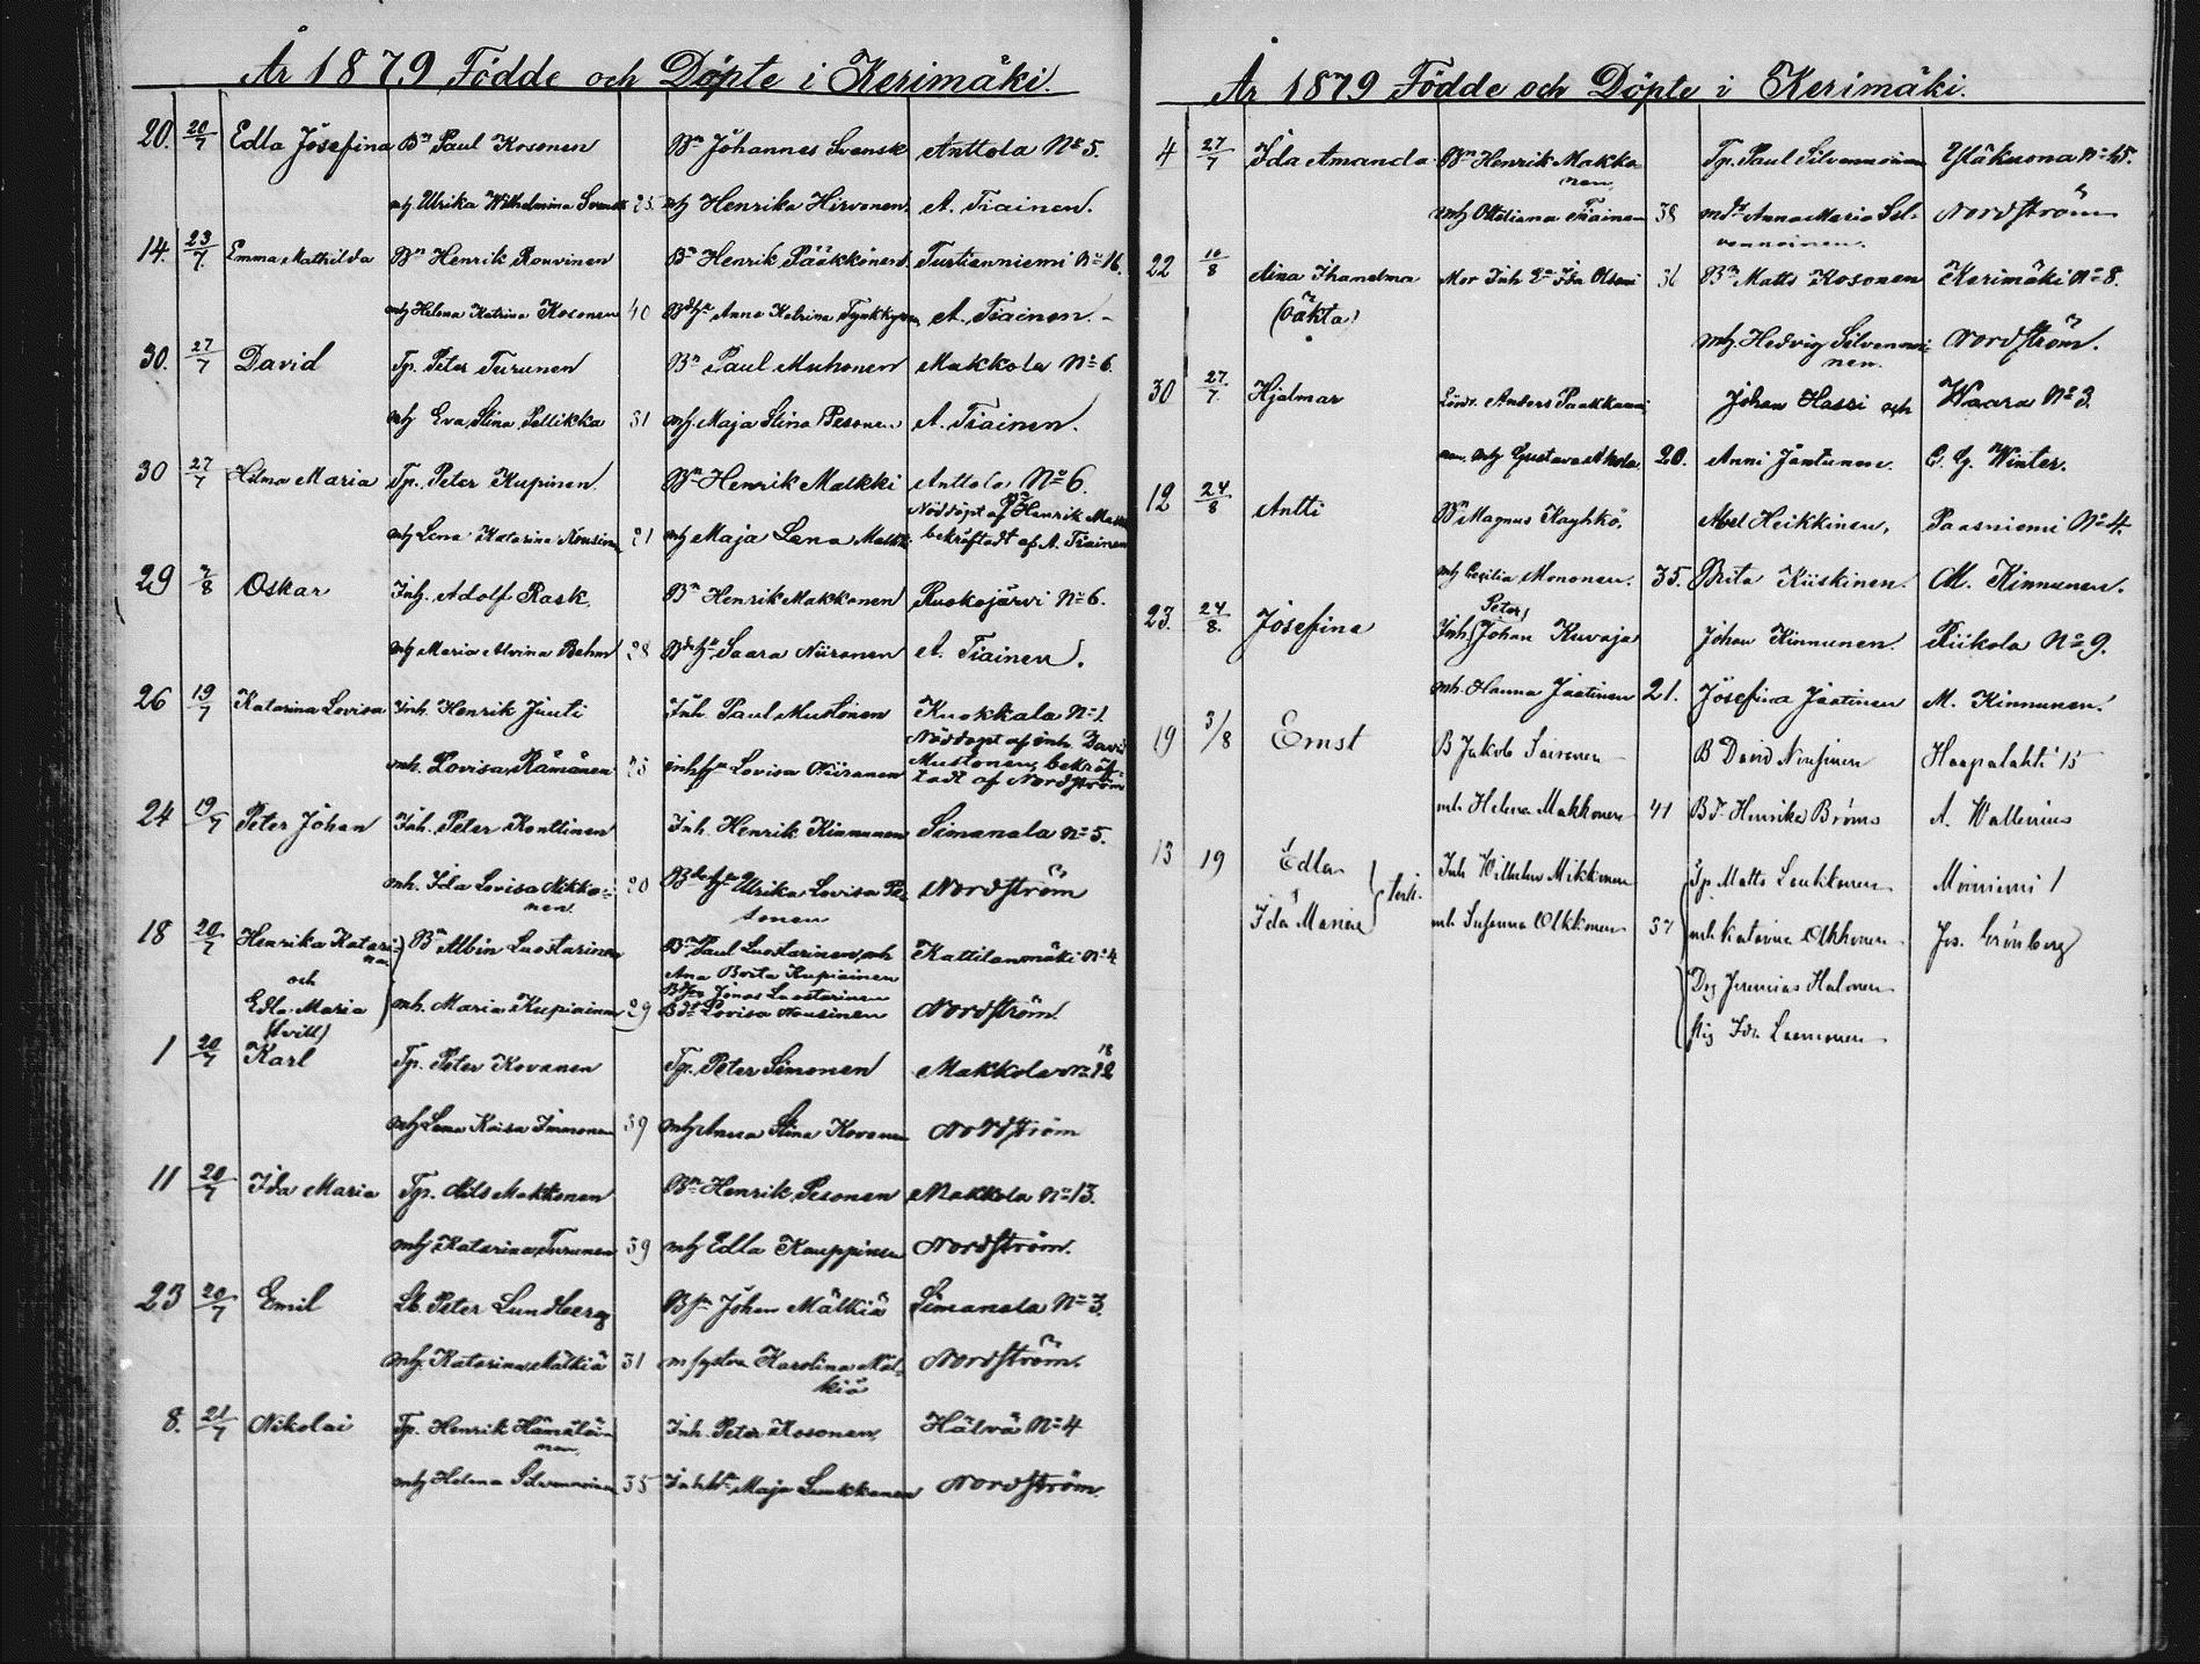 År 1879 Födde och Döpte i Kerimäki.
20. 20/7 Edla Josefina Bn Paul Kosonen Bn Johannes Svensk Anttola No 5.
mh Ulrika Wilhelmina Svensk 25. mh Henrika Hirvonen. A. Tiainen.
14. 23/7. Emma Mathilda Bn Henrik Rouvinen Bn Henrik Pääkkönen Turtianniemi No 16.
mh Helena Katrina Kosonen 40 Anna Katrina Tynkkynen A. Tiainen.
30. 27/7 David Tp. Peter Turunen Bn Paul Muhonen Makkola No 6.
mh Eva Stina Pellikka 31 mh. Maja Stina Pesonen A. Tiainen.
30 27/7 Hilma Maria Tp. Peter Kupinen. Bn Henrik Malkki Anttola No 6.
Nöddöpt af Bn Henrik
mh Lena Katarina Nousiainen 21 mh Maja Lena Malkki bekräftadt af A. Tiainen
29 3/8 Oskar Inh. Adolf Rask. Bn Henrik Makkonen Ruokojärvi No 6.
mh Maria Alvina Behm 28 Saara Niironen A. Tiainen.
26 19/7 Katarina Lovisa Inh. Henrik Juuti Inh Paul Mustonen Kuokkala No 1.
Nöddöpt af inh. David
mh. Lovisa Rämänen 25 Lovisa Niiranen Mustonen, bekräf-
tadt af Nordström
24 19/7 Peter Johan Inh. Peter Konttinen Inh. Henrik Kinnunen Simanala No 5.
mh. Ida Lovisa Nikko- 20 Ulrika Lovisa Pe- Nordström
nen. sonen
18 20/7 Henrika Katari- Bn Albin Luostarinen Bn Paul Luostarinen, mh Kattilanmäki No 4
na Ana Brita Kupiainen
och Jonas Luostarinen
Edla Maria mh. Maria Kupiainen 29 Lovisa Nousinen Nordström
(tvill)
1 20/7 Karl Tp. Peter Kovanen Tp. Peter Simonen Makkola No 12
18
mh Lena Kaisa Immonen 39 mh Anna Stina Kovanen Nordström
11 20/7 Ida Maria Tp. Nils Makkonen Bn Henrik Pesonen Makkola No 13.
mh Katarina Turunen 39 mh Edla Kauppinen Nordström.
23 20/7 Emil Peter Lundberg Johan Mälkiä Simanala No 3.
mh. Katarina Mälkiä 31 m syster Karolina Mäl- Nordström.
kiä
8. 21/7 Nikolai Tp. Henrik Hämäläi- Inh. Peter Kosonen Hälvä No 4
nen.
mh Helena Silvennoinen 35 Maja Luukkonen Nordström.
År 1879 Födde och Döpte i Kerimäki.
4 27/7 Ida Amanda Bn Henrik Makko- Tp. Paul Silvennoinen Yläkuona No 45.
nen
mh Ottiliana Tiainen 38 Anna Maria Sil- Nordström
vennoinen.
22 10/8 Aina Mor Inh Ida 36 Bn Matts Kosonen Kerimäki No 8.
(oäkta)
mh. Hedvig Silvennoi- Nordström.
nen.
30 27/7. Hjalmar Anders Paakkunai- Johan Hassi och Waara No 3.
nen. mh Gustava Ahola 20. Anni Jantunen. C. G. Winter.
12 24/8 Antti Bn Magnus Käyhkö, Abel Heikkinen, Paasniemi No 4.
mh Cecilia Mononen. 35. Brita Kiiskinen. M. Kinnunen.
Peter
23. 24/8. Josefina Inh. Johan Kuvaja Johan Kinnunen. Riikola No 9.
mh. Hanna Jaatinen 21. Josefina Jaatinen M. Kinnunen.
19 3/8 Ernst B Jakob B David Haapalahti 15
mh Helena Makkonen 41 Henrika Broms A. Wallenius
13 19 Edla Inh Wilhelm Mikkonen Tp. Matts
1
Ida Maria mh Susanna Olkkonen 37 mh Katarina Olkkonen Jos. Grönberg
Jeremias Halonen
Ida